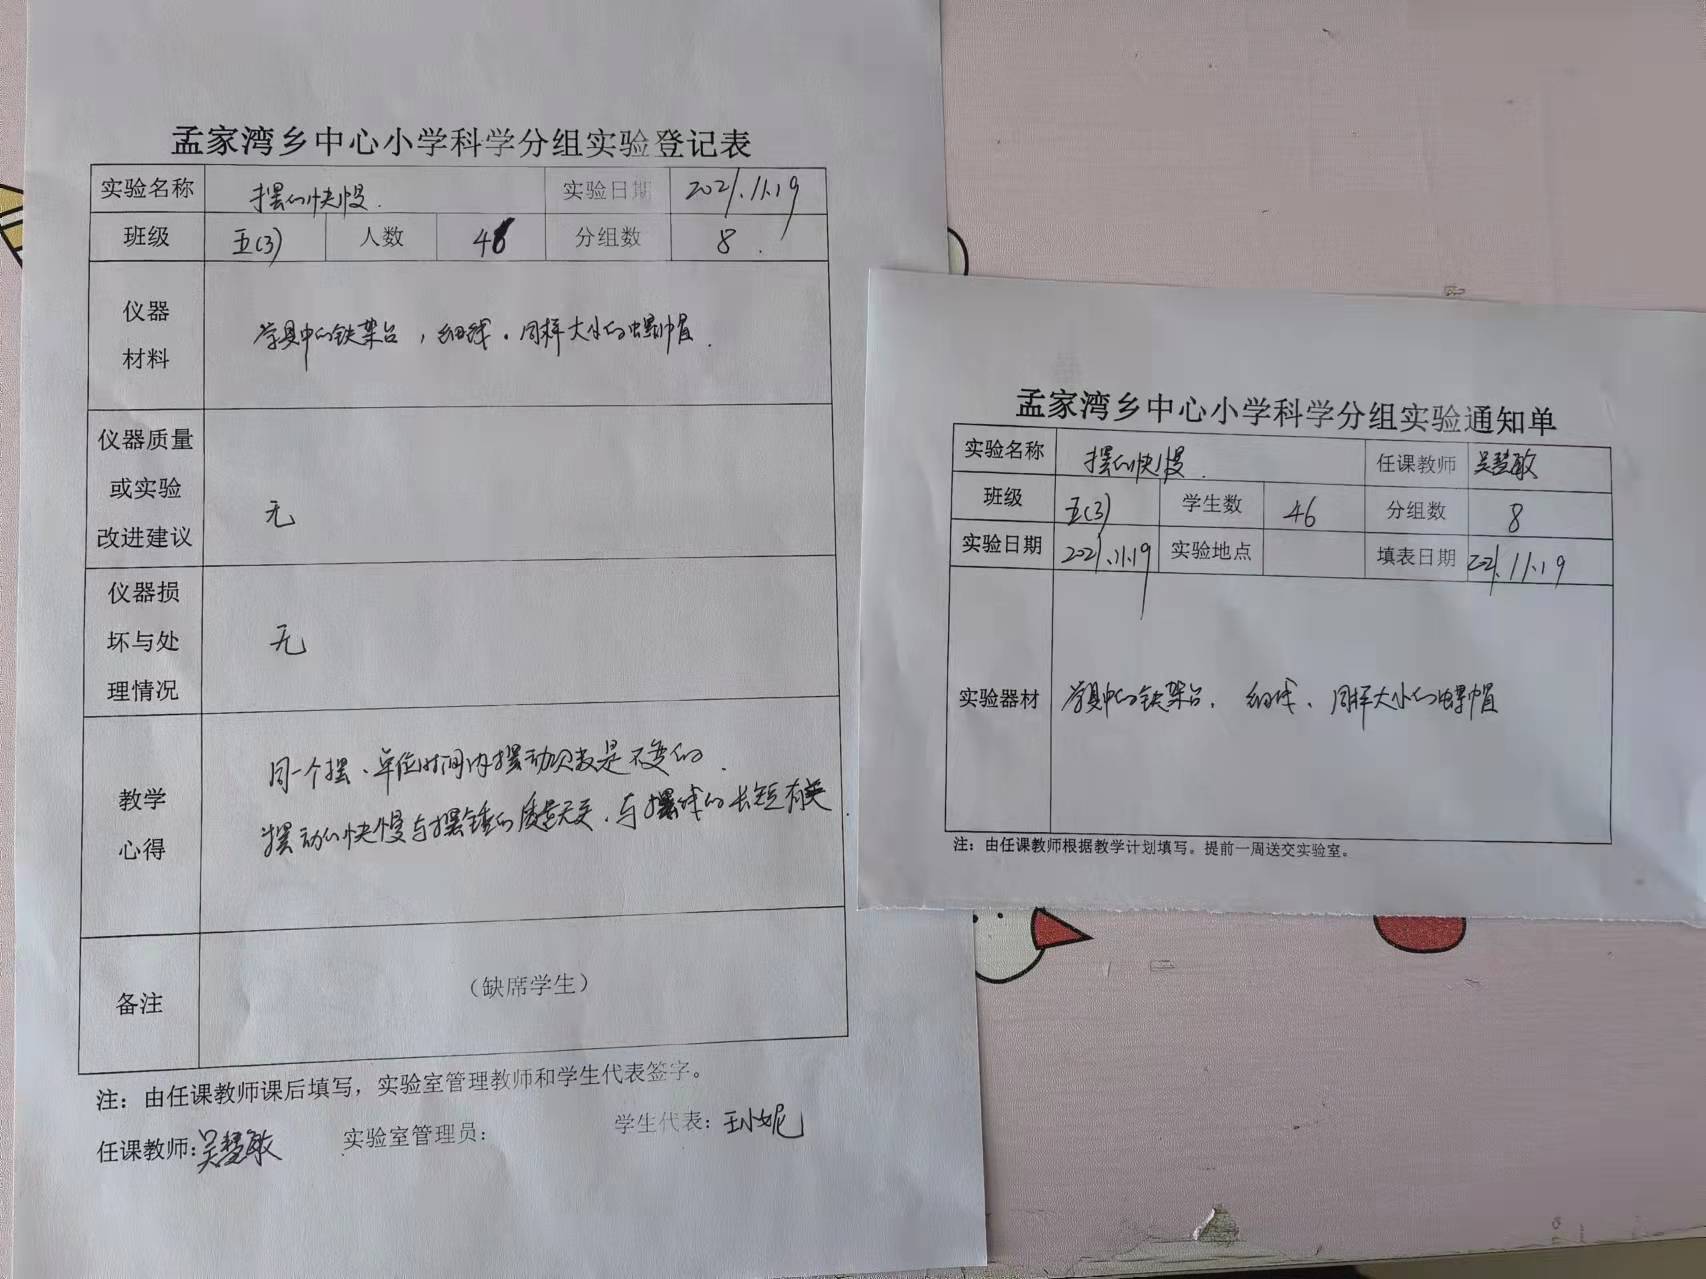 孟家湾乡中心小学科学分组实验登记表
实验名称 摆的快慢. 实验日期 2021.11.19
班级 五(3) 人数 46 分组数 8.
仪器
材料
学具中的铁架台，细线．同样大小的螺帽．
仪器质量
或实验
改进建议
无
仪器损
坏与处
理情况
无
教学
心得
同一个摆、单位时间内摆动次数是不变的．
摆动的快慢与摆锤的质量无关．与摆线的长短有关
备注
（缺席学生）
注：由任课教师课后填写，实验室管理教师和学生代表签字。
任课教师：吴慧敏 实验室管理员： 学生代表：王小妮
孟家湾乡中心小学科学分组实验通知单
实验名称 摆的快慢． 任课教师 吴慧敏
班级 五(3) 学生数 46 分组数 8
实验日期 2021.11.19 实验地点 填表日期 2021.11.19
实验器材 学具中的铁架台．细线、同样大小的螺帽
注：由任课教师根据教学计划填写。提前一周送交实验室。